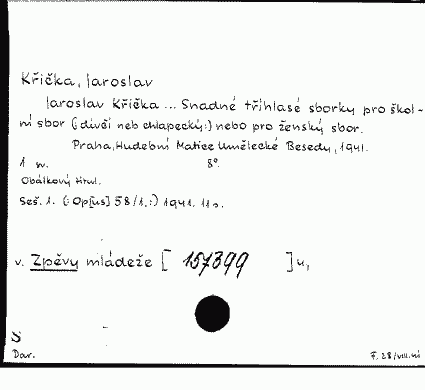 Křička, Jaroslav
Jaroslav Křička ... Snadné tříhlasé sborky pro škol-
ní sbor (:dívčí neb chlapecký:) nebo pro ženský sbor.
Praha, Hudební Matice Umělecké Besedy, 1941.
1 sv. 8°.
Obálkový titul.
Seš. 1. (:Op[us] 58/1.:) 1941. 11 s.
v. Zpěvy mládeže [ 157399 ]
S
Dar. F. 28/VIII.